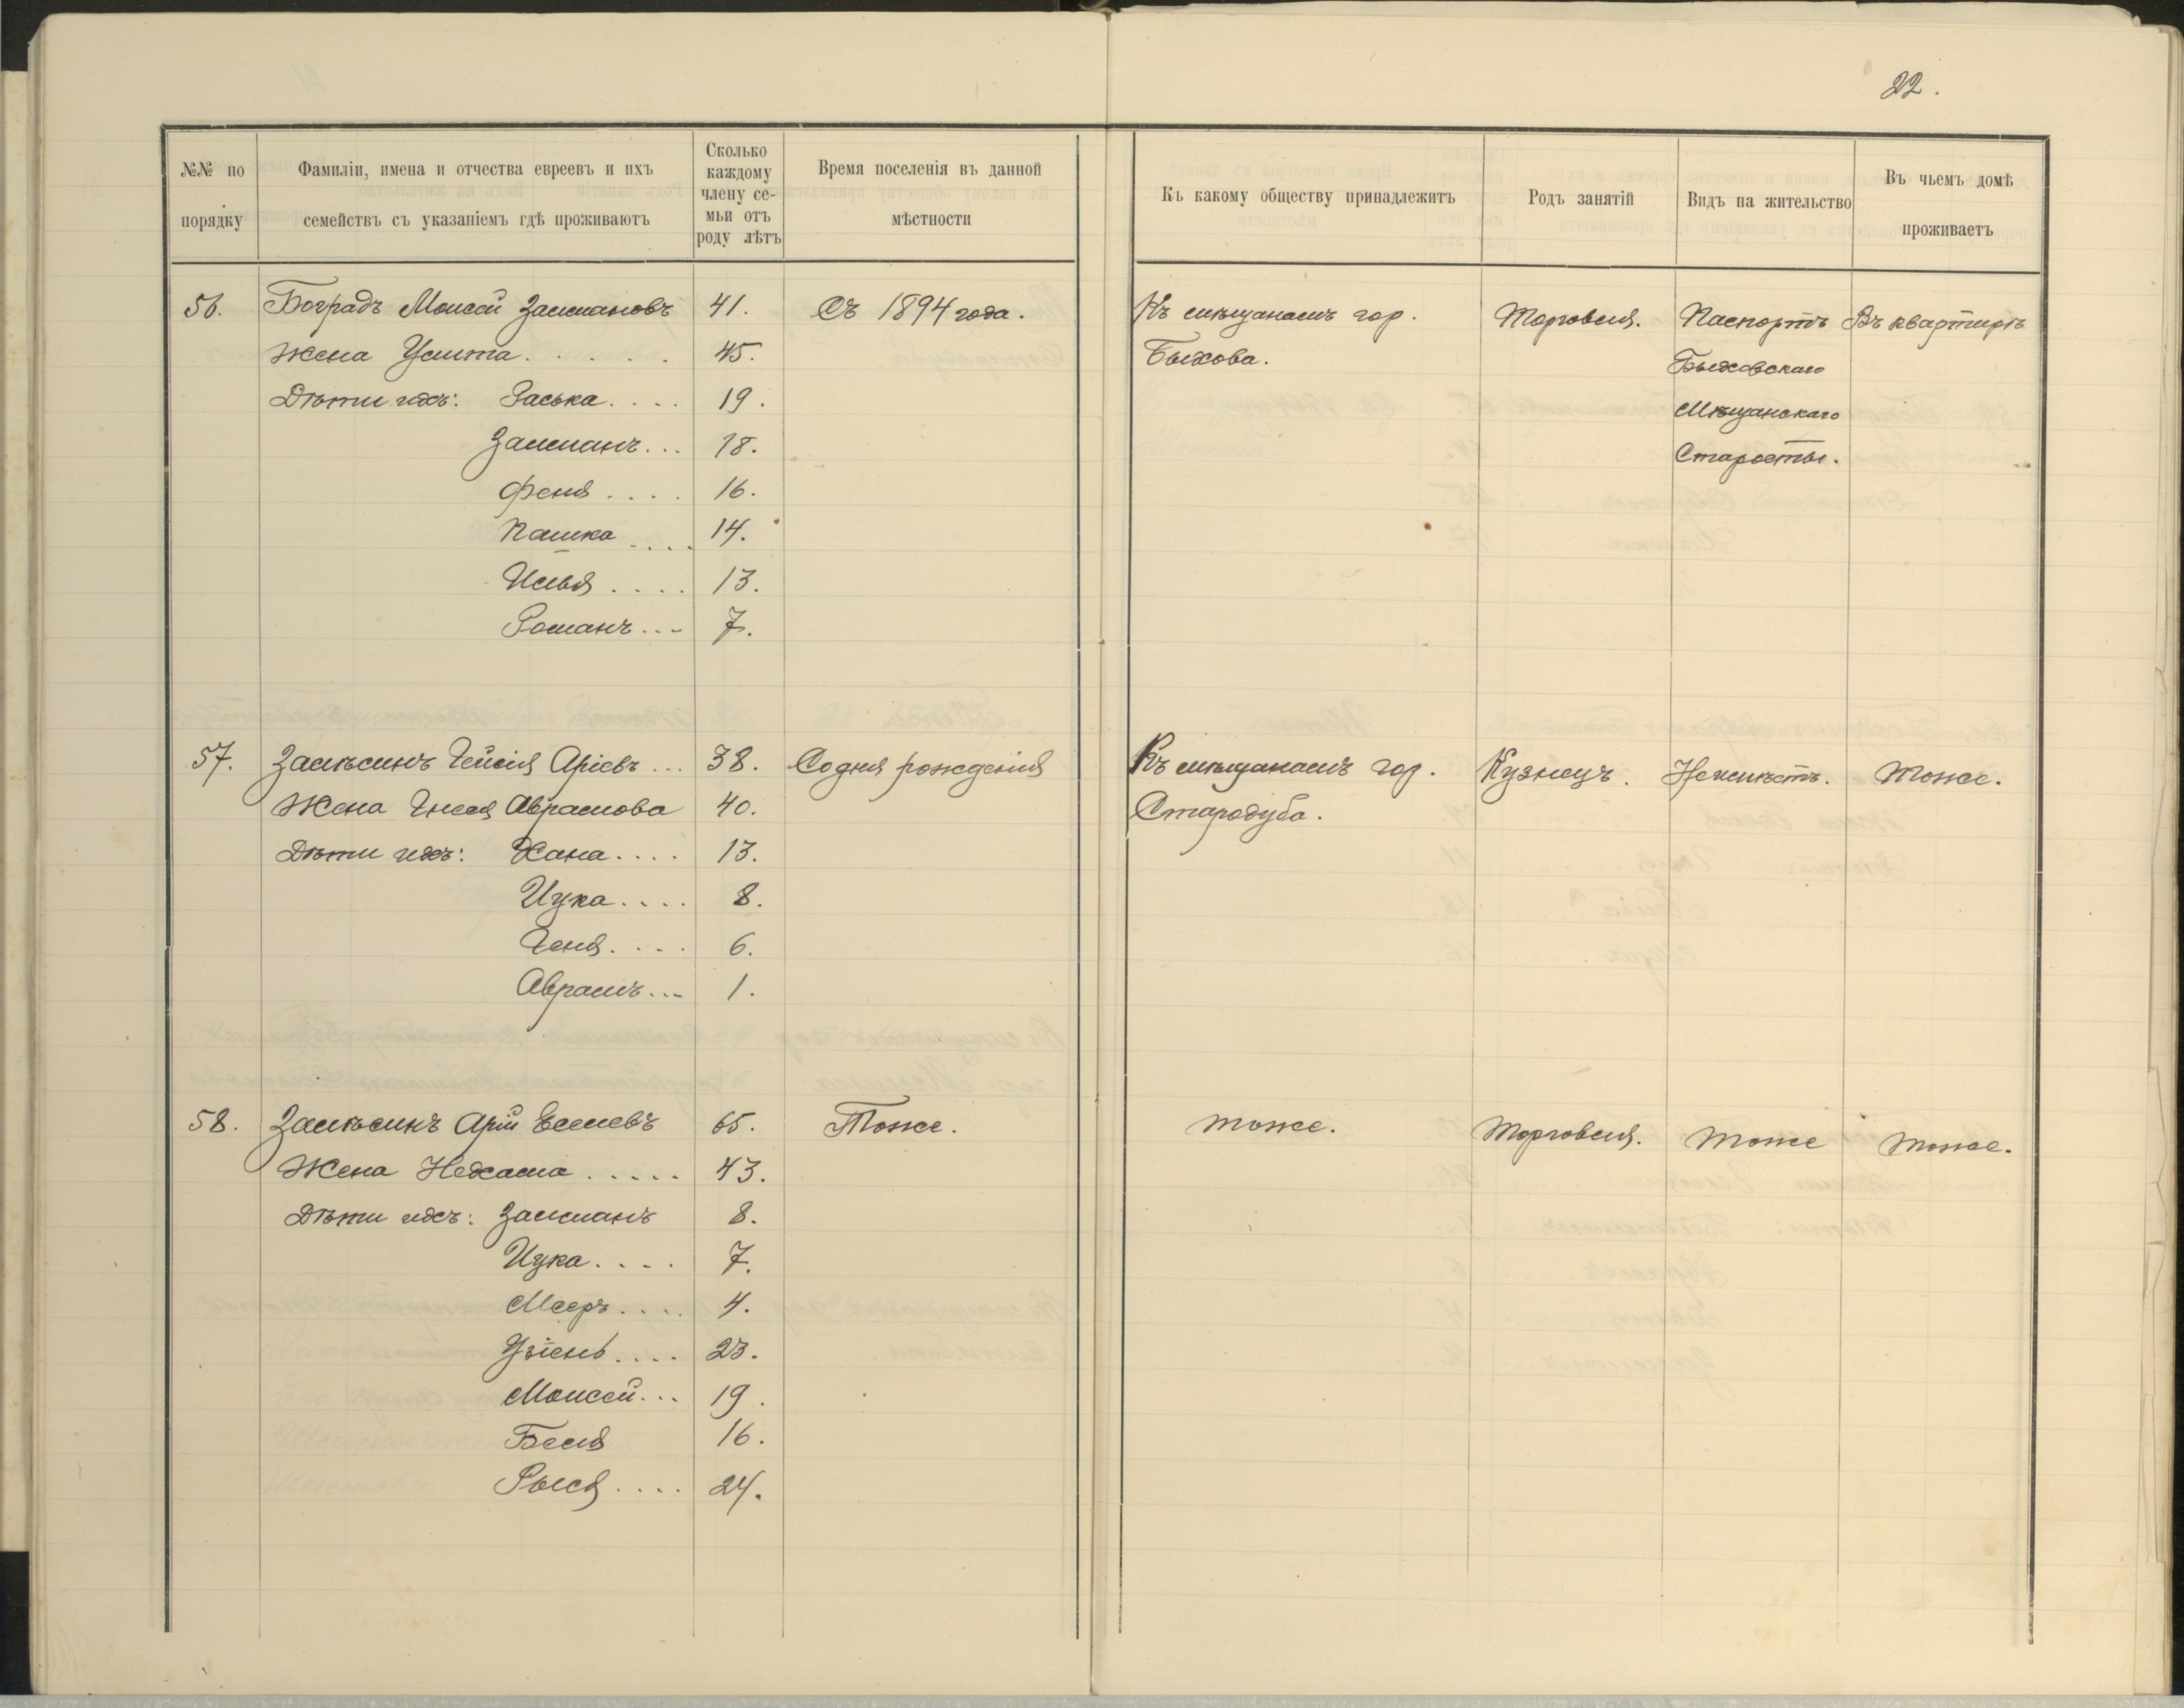 22.
№№ по
порядку
Фамиліи, имена и отчества евреевъ и ихъ
семействъ съ указаніемъ гдѣ проживаютъ
Сколько
каждому
члену се-
мьи отъ
роду лѣтъ
Время поселенія въ данной
мѣстности
Къ какому обществу принадлежитъ
Родъ занятій
Видъ на жительство
Въ чьемъ домѣ
проживаетъ
56. Боградъ Моисей Залмановъ 41. Съ 1894 года. Къ мѣщанамъ гор. Торговля. Паспортъ Въ квартирѣ
Жена Уамта..... 45. Быхова. Быховскаго
Дѣти ихъ: Раська.... 19. Мѣщанскаго
Залманъ... 18. Старосты.
Феня.... 16.
Пашка.... 14.
Илья.... 13.
Романъ... 7.
57. Залѣсинъ Аріевъ... 38. Со дня рожденія Къ мѣщанамъ гор. Кузнецъ. Неимѣетъ. Тоже.
Жена Гнеся Абрамова 40. Стародуба.
Дѣти ихъ: Хана.... 13.
Ицка.... 8.
Геня.... 6.
Абрамъ... 1.
58. Залѣсинъ Арій 65. Тоже. Тоже. Торговля. Тоже Тоже.
Жена Нехама..... 43.
Дѣти ихъ: Залманъ 8.
Ицка.... 7.
Мееръ.... 4.
Узіель.... 23.
Моисей... 19.
Беля 16.
Рыся.... 24.